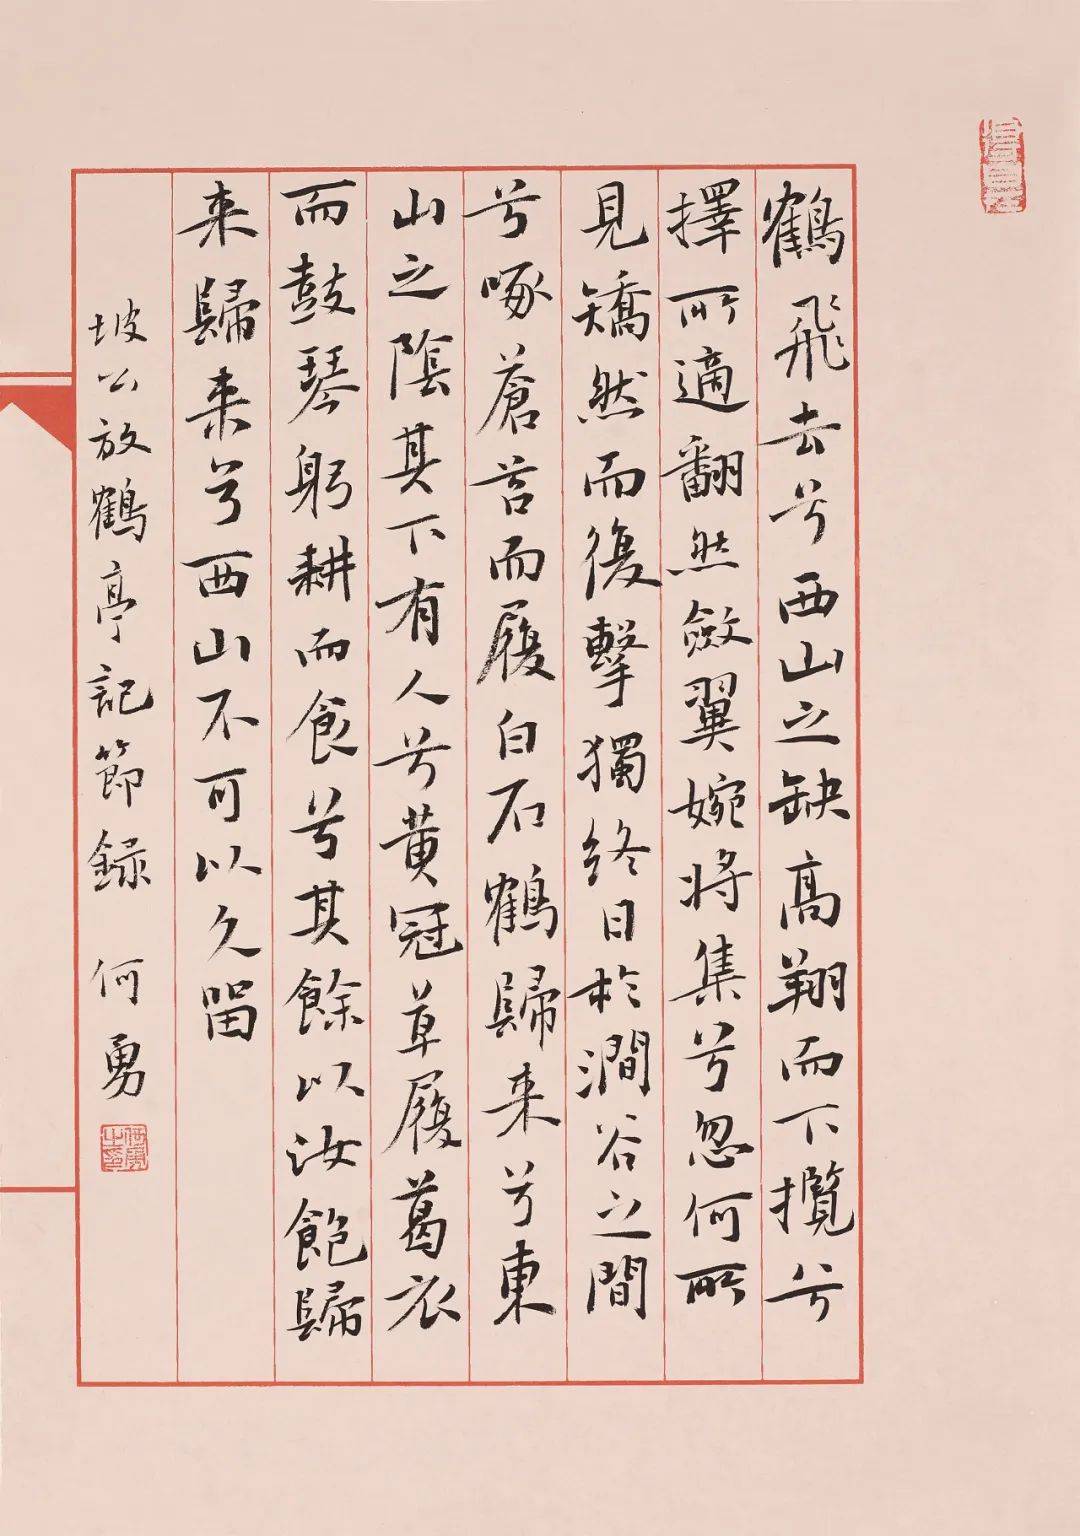 鶴飛去兮西山之缺高翔而下攬兮
擇所適翻然斂翼婉將集兮忽何所
見矯然而復擊獨終日於澗谷之間
兮啄蒼苔而履白石鶴歸来兮東
山之陰其下有人兮黄冠草履葛衣
而鼓琴躬耕而食兮其餘以汝飽歸
来歸来兮西山不可以久留
坡公放鶴亭記節録 何勇
何勇之印